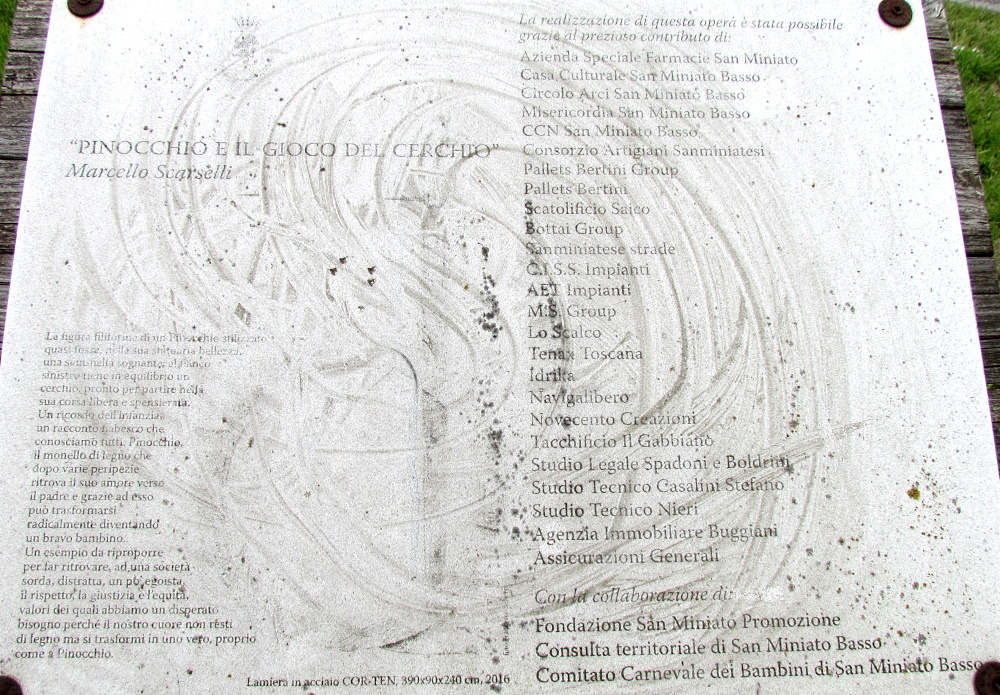 "PINOCCHIO E IL GIOCO DEL CERCHIO"
Marcello Scarselli
La figura filiforme di un Pinocchio stilizzato
quasi fosse, nella sua statuaria bellezza,
una sentinella sognante, al fianco
sinistro tiene in equilibrio un
cerchio, pronto per partire nella
sua corsa libera e spensierata.
Un ricordo dell'infanzia,
un racconto fiabesco che
conosciamo tutti: Pinocchio,
il monello di legno che
dopo varie peripezie
ritrova il suo amore verso
il padre e grazie ad esso
può trasformarsi
radicalmente diventando
un bravo bambino.
Un esempio da riproporre
per far ritrovare, ad una società
sorda, distratta, un po' egoista,
il rispetto, la giustizia e l'equità,
valori dei quali abbiamo un disperato
bisogno perché il nostro cuore non resti
di legno ma si trasformi in uno vero, proprio
come a Pinocchio.
Lamiera in acciaio COR-TEN, 390x90x240 cm, 2016
La realizzazione di questa opera è stata possibile
grazie al prezioso contributo di:
Azienda Speciale Farmacie San Miniato
Casa Culturale San Miniato Basso
Circolo Arci San Miniato Basso
Misericordia San Miniato Basso
CCN San Miniato Basso
Consorzio Artigiani Sanminiatesi
Pallets Bertini Group
Pallets Bertini
Scatolificio Saico
Bottai Group
Sanminiatese strade
C.I.S.S. Impianti
AET Impianti
M.S. Group
Lo Scalco
Tenax Toscana
Idrika
Navigalibero
Novecento Creazioni
Tacchificio Il Gabbiano
Studio Legale Spadoni e Boldrini
Studio Tecnico Casalini Stefano
Studio Tecnico Nieri
Agenzia Immobiliare Buggiani
Assicurazioni Generali
Con la collaborazione di:
Fondazione San Miniato Promozione
Consulta territoriale di San Miniato Basso
Comitato Carnevale dei Bambini di San Miniato Basso